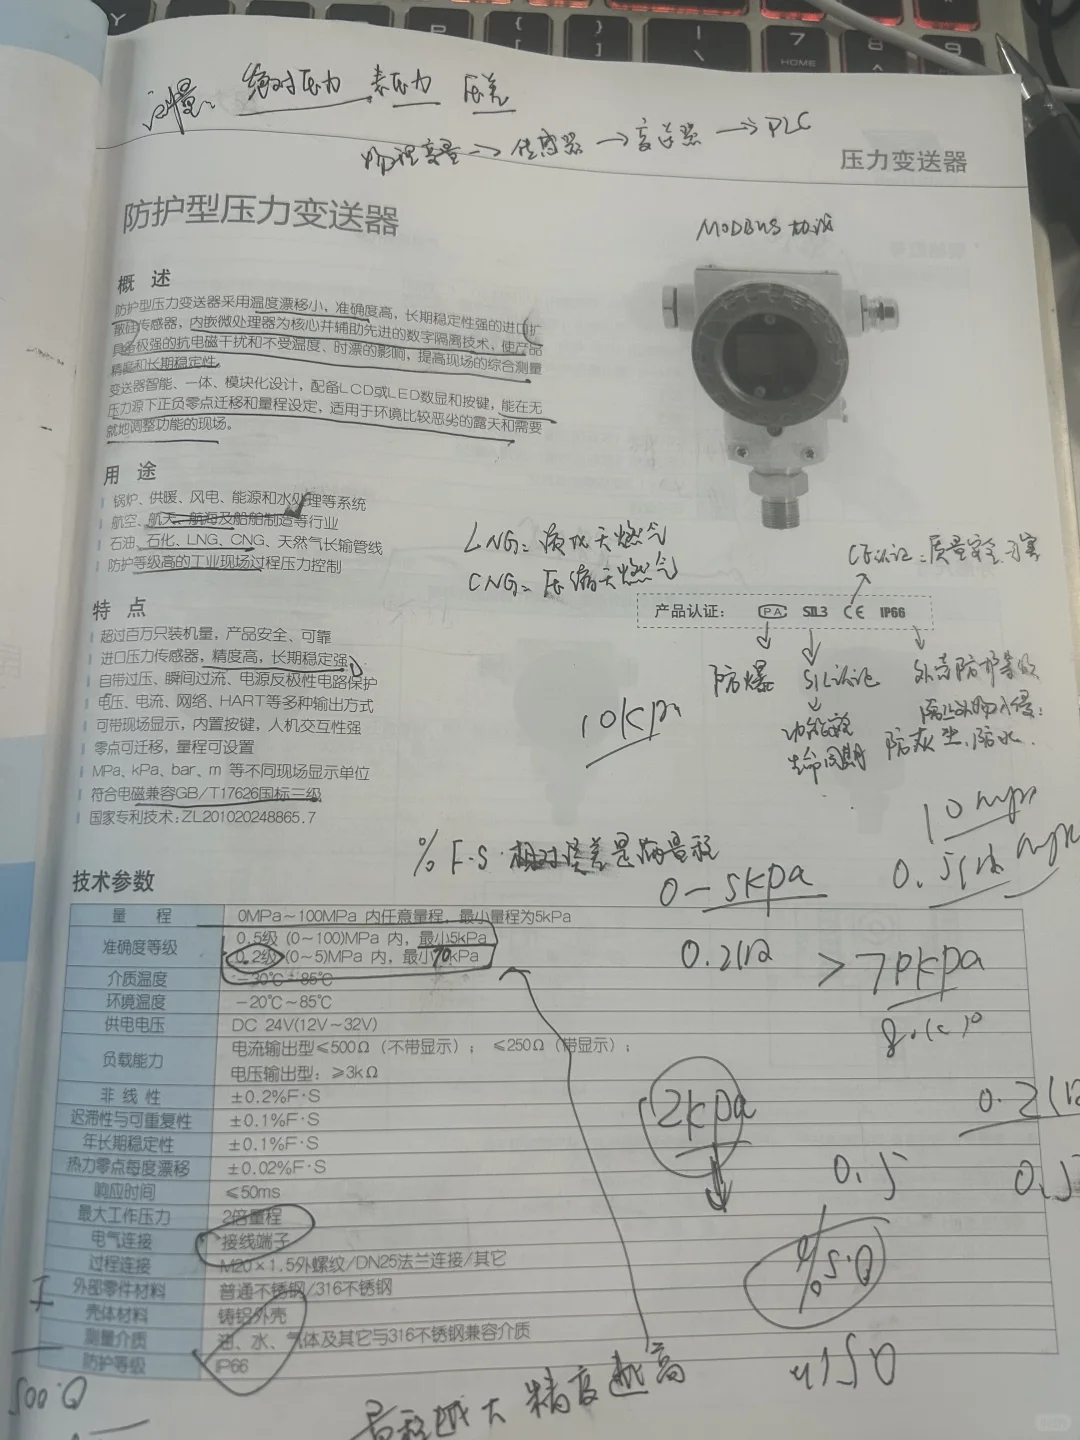 测量: 绝对压力 表压力 压差
物理变量 → 传感器 → 变送器 → PLC
压力变送器
防护型压力变送器
MODBUS 协议
概 述
防护型压力变送器采用温度漂移小，准确度高，长期稳定性强的进口扩
散硅传感器，内嵌微处理器为核心并辅助先进的数字隔离技术，使产品
具备极强的抗电磁干扰和不受温度、时漂的影响，提高现场的综合测量
精度和长期稳定性。
变送器智能、一体、模块化设计，配备LCD或LED数显和按键，能在无
压力源下正负零点迁移和量程设定，适用于环境比较恶劣的露天和需要
就地调整功能的现场。
用 途
锅炉、供暖、风电、能源和水处理等系统
航空、航天、航海及船舶制造等行业
石油、石化、LNG、CNG、天然气长输管线
防护等级高的工业现场过程压力控制
LNG: 液化天燃气
CNG: 压缩天燃气
CE认证: 质量安全
产品认证: PA SIL3 CE IP66
防爆
SIL认证
外壳防护等级
防灰尘、防水.
生命周期
10kpa
特 点
超过百万只装机量，产品安全、可靠
进口压力传感器，精度高，长期稳定强
自带过压、瞬间过流、电源反极性电路保护
电压、电流、网络、HART等多种输出方式
可带现场显示，内置按键，人机交互性强
零点可迁移，量程可设置
MPa、kPa、bar、m 等不同现场显示单位
符合电磁兼容GB/T17626国标三级
国家专利技术:ZL201020248865.7
10 mpa
% F·S 相对误差是满量程
0-5kpa
技术参数
量 程 0MPa~100MPa 内任意量程，最小量程为5kPa
准确度等级 0.5级 (0~100)MPa 内，最小5kPa
0.2级 (0~5)MPa 内，最小70kPa
介质温度 -30℃~85℃
环境温度 -20℃~85℃
供电电压 DC 24V(12V~32V)
负载能力 电流输出型≤500Ω（不带显示）； ≤250Ω（带显示）；
电压输出型：≥3kΩ
非 线 性 ±0.2%F·S
迟滞性与可重复性 ±0.1%F·S
年长期稳定性 ±0.1%F·S
热力零点每度漂移 ±0.02%F·S
响应时间 ≤50ms
最大工作压力 2倍量程
电气连接 接线端子
过程连接 M20×1.5外螺纹/DN25法兰连接/其它
外部零件材料 普通不锈钢/316不锈钢
壳体材料 铸铝外壳
测量介质 油、水、气体及其它与316不锈钢兼容介质
防护等级 IP66
2kpa
0.5
量程越大 精度越高